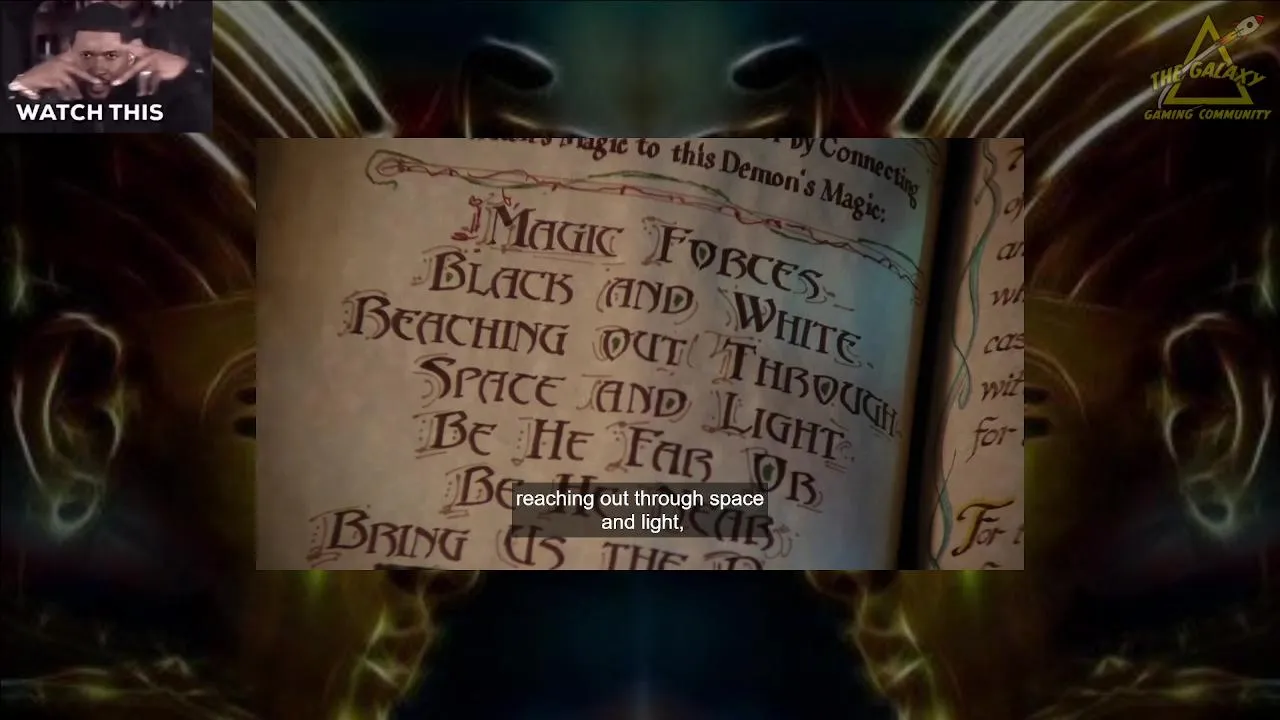 WATCH THIS
THE GALAXY
GAMING COMMUNITY
Magic to this Demon's Magic:
by Connecting
MAGIC FORCES
BLACK AND WHITE
REACHING OUT THROUGH
SPACE AND LIGHT
BE HE FAR OR
BE HE NEAR
reaching out through space
and light,
BRING US THE
for
For